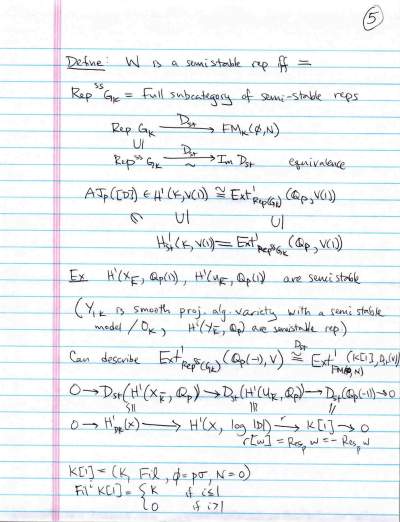 5
Define: W is a semistable rep iff =
Rep^ss G_K = Full subcategory of semi-stable reps
Rep G_K —D_st→ FM_K(ϕ,N)
∪|
Rep^ss G_K —D_st→ ~ Im D_st equivalence
AJ_p([D]) ∈ H^1(K,V(1)) ≅ Ext^1_Rep(G_K) (Q_p, V(1))
∈ ∪| ∪|
H^1_st(K,V(1)) = Ext^1_Rep^ss G_K (Q_p, V(1))
Ex H^1(X_K̄, Q_p(1)), H^1(U_K̄, Q_p(1)) are semistable
(Y/K is smooth proj. alg. variety with a semi stable
model /O_K, H^i(Y_K̄, Q_p) are semistable rep)
Can describe Ext^1_Rep^ss(G_K) (Q_p(-1), V) ≅^D_st Ext^1_FM(ϕ,N) (K[1], D_st(V))
0 → D_st(H^1(X_K̄, Q_p)) → D_st(H^1(U_K̄, Q_p)) → D_st(Q_p(-1)) → 0
0 → H^1_dR(X) → H^1(X, log |D|) —r→ K[1] → 0
r[w] = Res_p w = - Res_p w
K[1] = (K, Fil, ϕ = pσ, N = 0)
Fil^i K[1] = { K if i≤1
0 if i>1